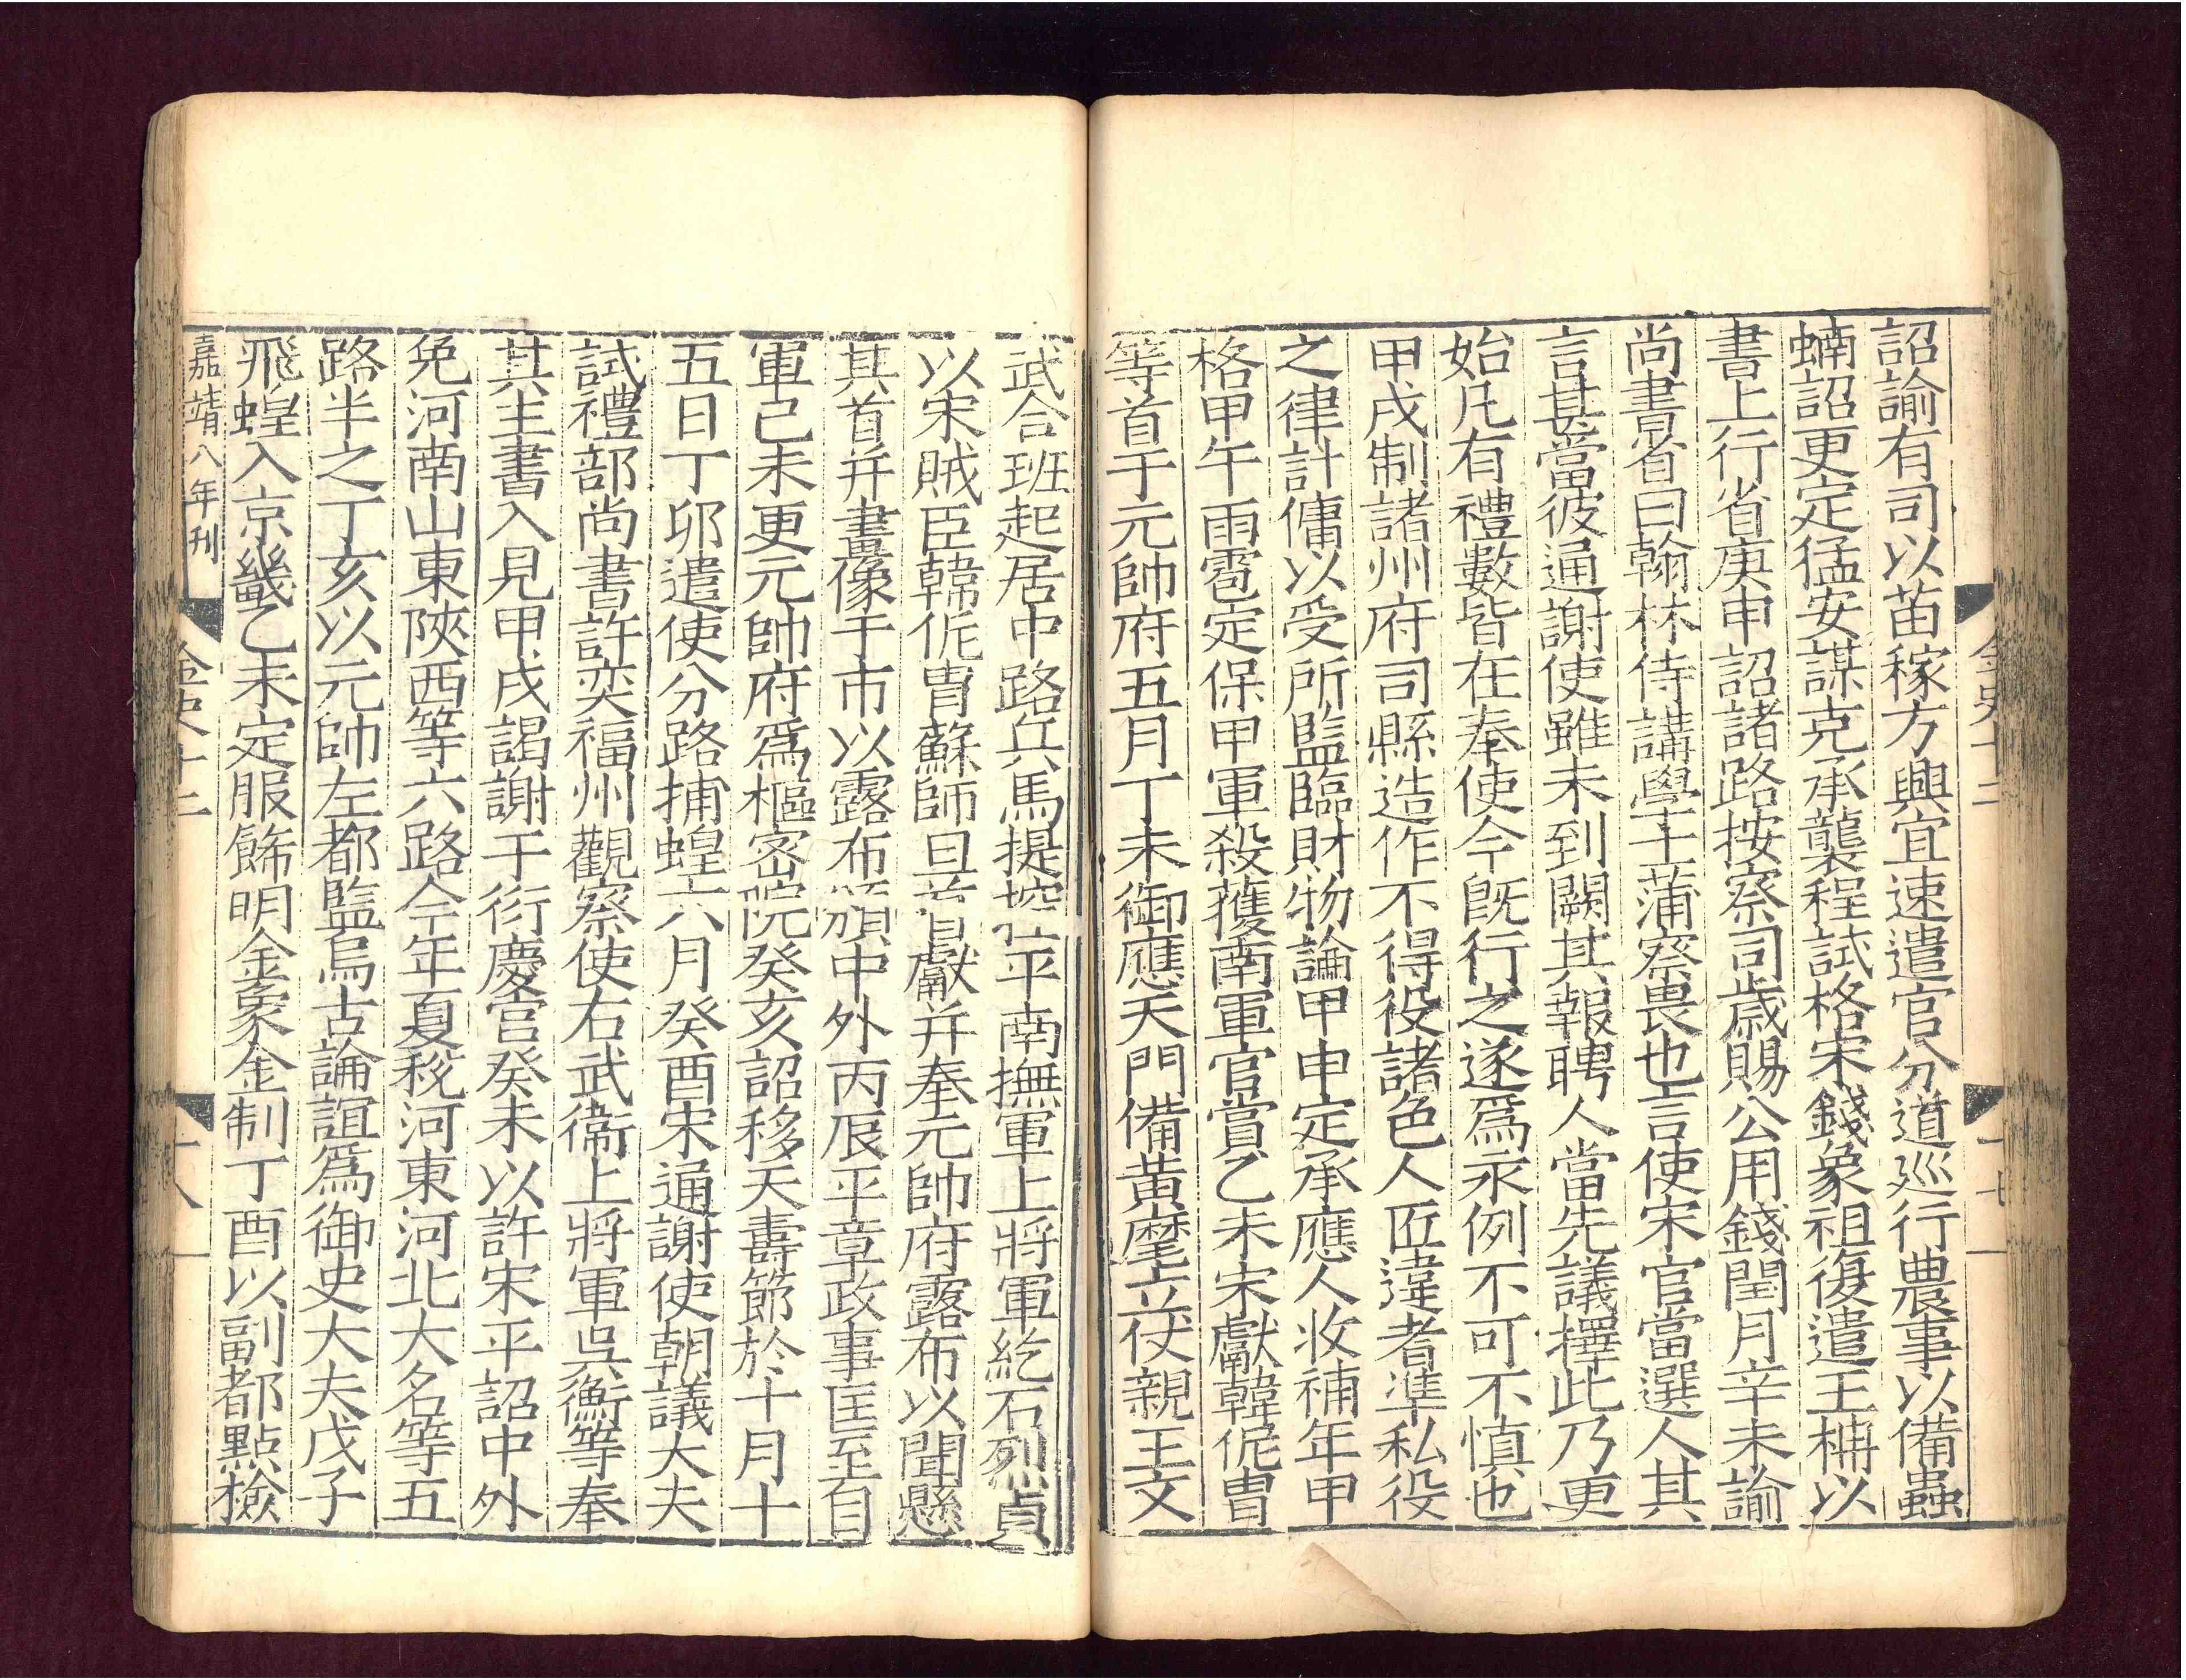 詔諭有司以苗稼方興宜速遣官分道巡行農事以備蟲
蝻詔更定猛安謀克承襲程試格宋錢象祖復遣王柟以
書上行省庚申詔諸路按察司歳賜公用錢閏月辛未諭
尚書省曰翰林侍講學士蒲察畏也言使宋官當選人其
言甚當彼通謝使雖未到闕其報聘人當先議擇此乃更
始凡有禮數皆在奉使今旣行之遂爲永例不可不慎也
甲戌制諸州府司縣造作不得役諸色人匠違者準私役
之律計傭以受所監臨財物論甲申定承應人收補年甲
格甲午雨雹定保甲軍殺獲南軍官賞乙未宋獻韓侂冑
等首于元帥府五月丁未御應天門備黃麾立仗親王文
武合班起居中路兵馬提控平南撫軍上將軍紇石烈貞
以宋賊臣韓侂冑蘇師旦首獻并奉元帥府露布以聞懸
其首并畫像于市以露布頒中外丙辰平章政事匡至自
軍己未更元帥府爲樞密院癸亥詔移天壽節於十月十
五日丁卯遣使分路捕蝗六月癸酉宋通謝使朝議大夫
試禮部尚書許奕福州觀察使右武衞上將軍吳衡等奉
其主書入見甲戌謁謝于衍慶宮癸未以許宋平詔中外
免河南山東陝西等六路今年夏稅河東河北大名等五
路半之丁亥以元帥左都監烏古論誼爲御史大夫戊子
飛蝗入京畿乙未定服飾明金象金制丁酉以副都點檢
嘉靖八年刊
金史十二
十七
金史十二
十八